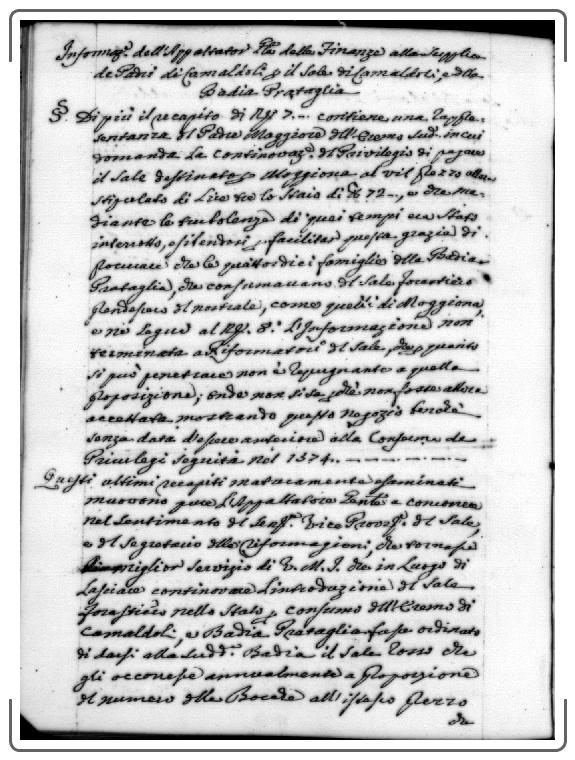 Informaz.e dell'Appaltator Gñle delle Finanze alla Supplica
de Padri di Camaldoli, p il Sale di Camaldoli, e della
Badia Prataglia
§. Di più il recapito di N.o 7... contiene una rappre-
sentanza del Padre Maggiore dell'Eremo Sud.o in cui
domanda la continovaz.e del Privilegio di pagare
il Sale destinato p Moggiona al vil prezzo
stipulato di Lire tre lo Staio di lb 72.., e che me-
diante le turbolenze di quei tempi era stato
interrotto, esibendosi, p facilitar questa grazia di
procurare che le quattordici famiglie della Badia
Prataglia, che consumavano del Sale forastiero
prendessero del nostrale, come quelli di Moggiona,
e ne segue al N.o 8.o l'Informazione non
terminata a Riformatori del Sale, che p quanto
si può penetrare non è repugnante a quella
proposizione; onde non si sa che non fosse allora
accettata mostrando questo negozio benchè
senza data d'essere anteriore alla Conferma de
Privilegi seguita nel 1574..
Questi ultimi recapiti maturamente esaminati
muovono pure l'Appaltatore Gentĕ a concorrere
nel sentimento del Sen.re Vice Provv.re del Sale,
e del Segretario delle Riformagioni, che tornasse
miglior servizio di V. M. I. che in luogo di
lasciare continovare l'introduzione del Sale
forastiero nello Stato p consumo dell'Eremo di
Camaldoli, e Badia Prataglia fosse ordinato
di darsi alla Sudd.a Badia il Sale rosso che
gli occorresse annualmente a proporzione
del numero delle Bocche all'istesso prezzo
che